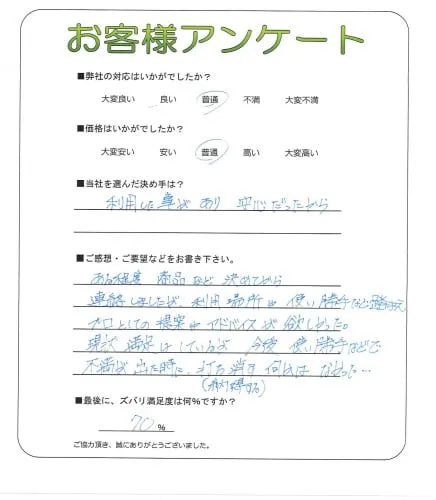 お客様アンケート
■弊社の対応はいかがでしたか？
大変良い 良い 普通 不満 大変不満
■価格はいかがでしたか？
大変安い 安い 普通 高い 大変高い
■当社を選んだ決め手は？
利用した事があり 安心だったから
■ご感想・ご要望などをお書き下さい。
ある程度 商品など 決めてから
連絡しましたが、利用場所や使い勝手など踏まえ
プロとしての提案やアドバイスが欲しかった。
現状満足はしているが 今後 使い勝手などで
不満が出た時に、打ち消す何かは なかった…
■最後に、ズバリ満足度は何%ですか？
70 %
ご協力頂き、誠にありがとうございました。